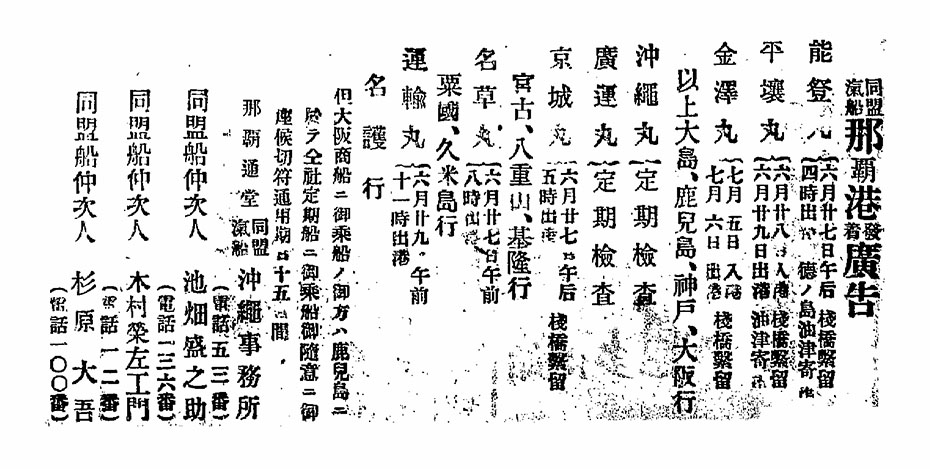 同盟汽船那覇港發着廣告
能登丸
六月廿七日午后
四時出港
棧橋繫留
德ノ島油津寄港
平壤丸
六月廿八日入港
六月廿九日出港
棧橋繫留
油津寄港
金澤丸
七月五日入港
七月六日出港
棧橋繫留
以上大島、鹿兒島、神戸、大阪行
沖繩丸 定期檢査
廣運丸 定期檢査
京城丸
六月廿七日午后
五時出港
棧橋繫留
宮古、八重山、基隆行
名草丸
六月廿七日午前
八時出港
粟國、久米島行
運輸丸
六月廿九日午前
十一時出港
名護行
但大阪商船ニ御乘船ノ御方ハ鹿兒島ニ
於テ仝社定期船ニ御乘船御隨意ニ御
座候切符通用期日十五日間
那覇通堂 同盟汽船 沖繩事務所
(電話五三番)
同盟船仲次人 池畑盛之助
(電話一三六番)
同盟船仲次人 木村榮左工門
(電話一二番)
同盟船仲次人 杉原大吾
(電話一〇〇番)